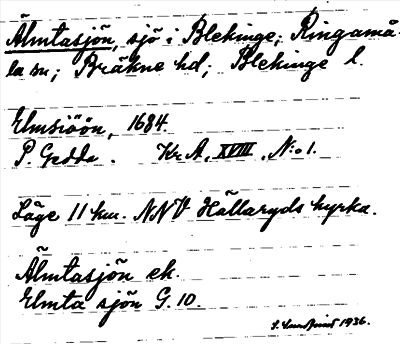 Älmtasjön, sjö i Blekinge; Ringamå-
la sn; Bräkne hd; Blekinge l.
Elmsiöön, 1684.
P. Gedda. Kr A, XVIII, N:o 1.
Läge 11 km. NNV Hällaryds kyrka.
Älmtasjön ek.
Elmta sjön G. 10.
S. 1936.